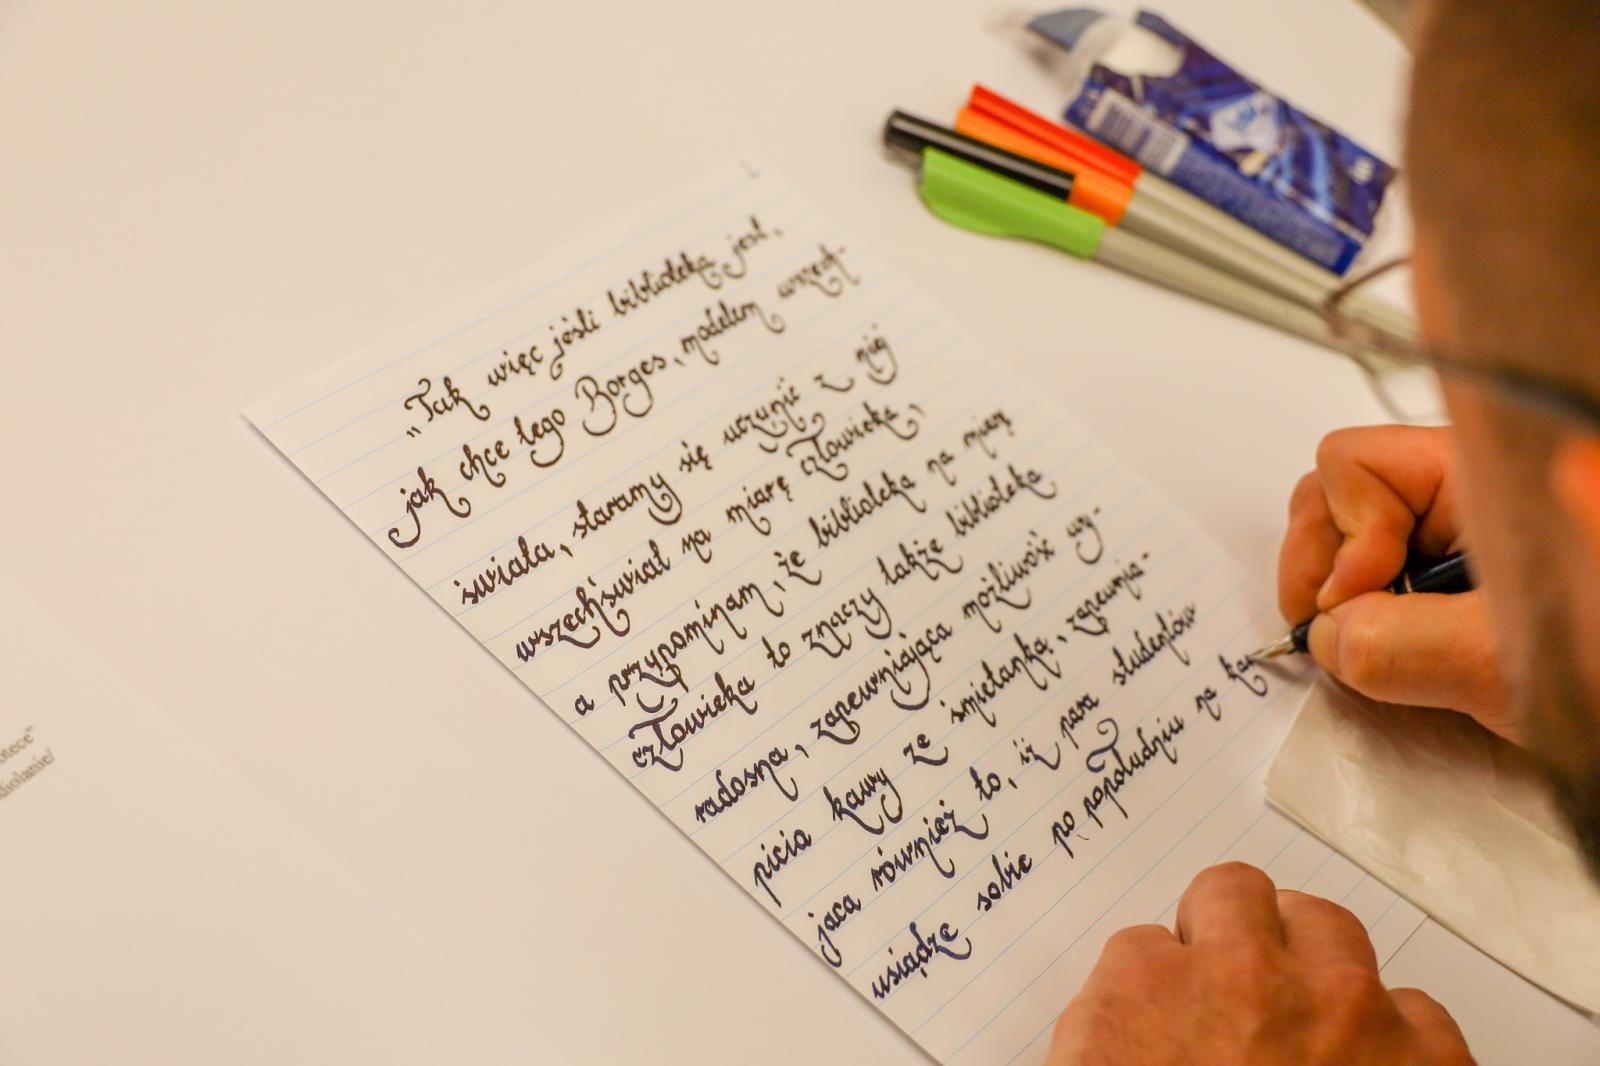 „Tak więc jeśli biblioteka jest,
jak chce tego Borges, modelem wszech-
świata, staramy się uczynić z niej
wszechświat na miarę człowieka,
a przypominam, że biblioteka na miarę
człowieka to znaczy także biblioteka
radosna, zapewniająca możliwość wy-
picia kawy ze śmietanką, zapewnia-
jaca również to, iż para studentów
usiądze sobie po popołudniu na ka
otece"
diolanie/